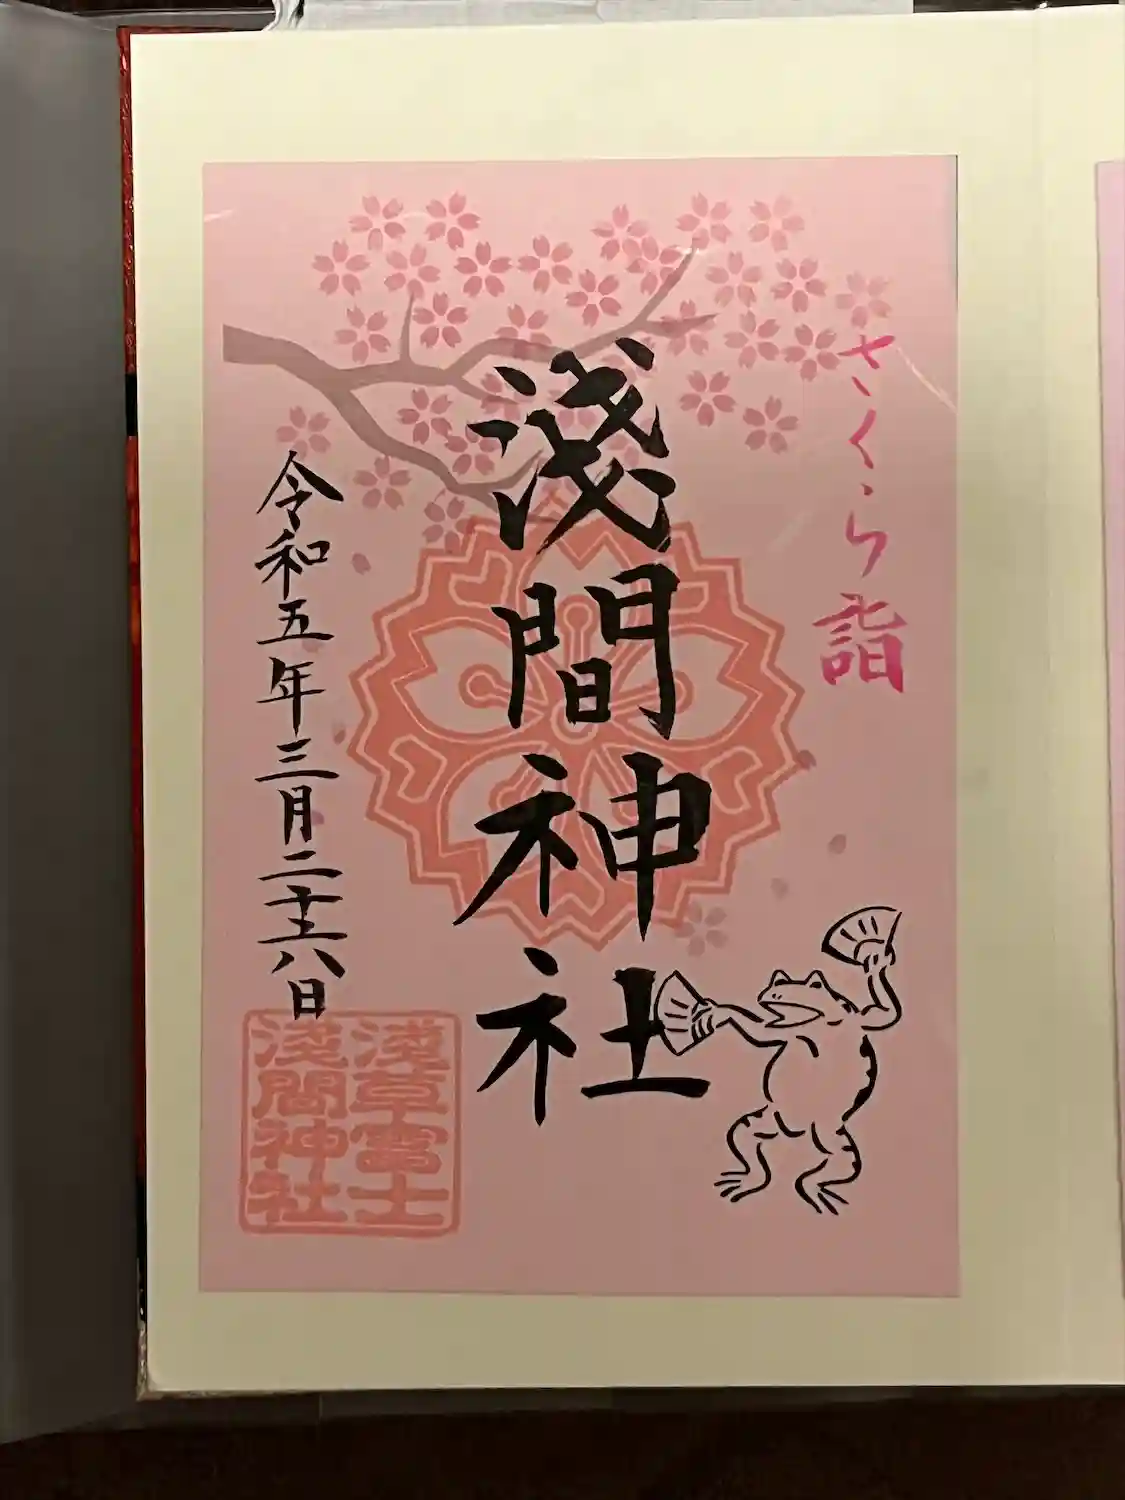 さくら詣
淺間神社
令和五年三月二十六日
淺草富士
淺間神社